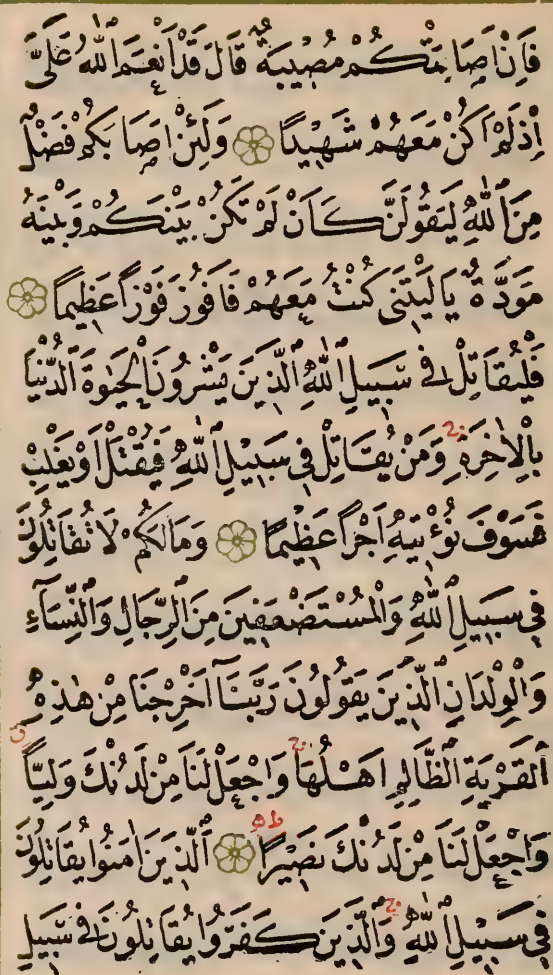 فَاِنْ اَصَابَتْكُمْ مُصٖيبَةٌ قَالَ قَدْ اَنْعَمَ اللّٰهُ عَلَىَّ
اِذْ لَمْ اَكُنْ مَعَهُمْ شَهٖيدًا ۞ وَلَئِنْ اَصَابَكُمْ فَضْلٌ
مِنَ اللّٰهِ لَيَقُولَنَّ كَاَنْ لَمْ تَكُنْ بَيْنَكُمْ وَبَيْنَهُ
مَوَدَّةٌ يَا لَيْتَنٖى كُنْتُ مَعَهُمْ فَاَفُوزَ فَوْزًا عَظٖيمًا ۞
فَلْيُقَاتِلْ فٖى سَبٖيلِ اللّٰهِ الَّذٖينَ يَشْرُونَ الْحَيٰوةَ الدُّنْيَا
بِالْاٰخِرَةِ وَمَنْ يُقَاتِلْ فٖى سَبٖيلِ اللّٰهِ فَيُقْتَلْ اَوْ يَغْلِبْ
فَسَوْفَ نُؤْتٖيهِ اَجْرًا عَظٖيمًا ۞ وَمَا لَكُمْ لَا تُقَاتِلُونَ
فٖى سَبٖيلِ اللّٰهِ وَالْمُسْتَضْعَفٖينَ مِنَ الرِّجَالِ وَالنِّسَاۤءِ
وَالْوِلْدَانِ الَّذٖينَ يَقُولُونَ رَبَّنَاۤ اَخْرِجْنَا مِنْ هٰذِهِ
الْقَرْيَةِ الظَّالِمِ اَهْلُهَا وَاجْعَلْ لَنَا مِنْ لَدُنْكَ وَلِيًّا
وَاجْعَلْ لَنَا مِنْ لَدُنْكَ نَصٖيرًا ۞ اَلَّذٖينَ اٰمَنُوا يُقَاتِلُونَ
فٖى سَبٖيلِ اللّٰهِ وَالَّذٖينَ كَفَرُوا يُقَاتِلُونَ فٖى سَبٖيلِ